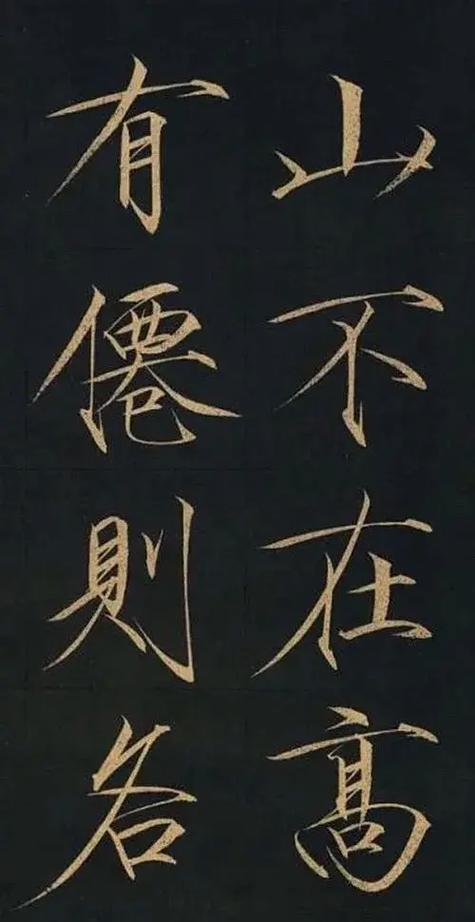 山不在高
有僊則名